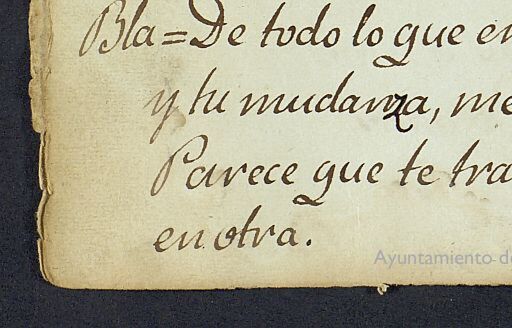 Bla=De todo lo que en
y tu mudanza, me
Parece que te tra
en otra.
Ayuntamiento de